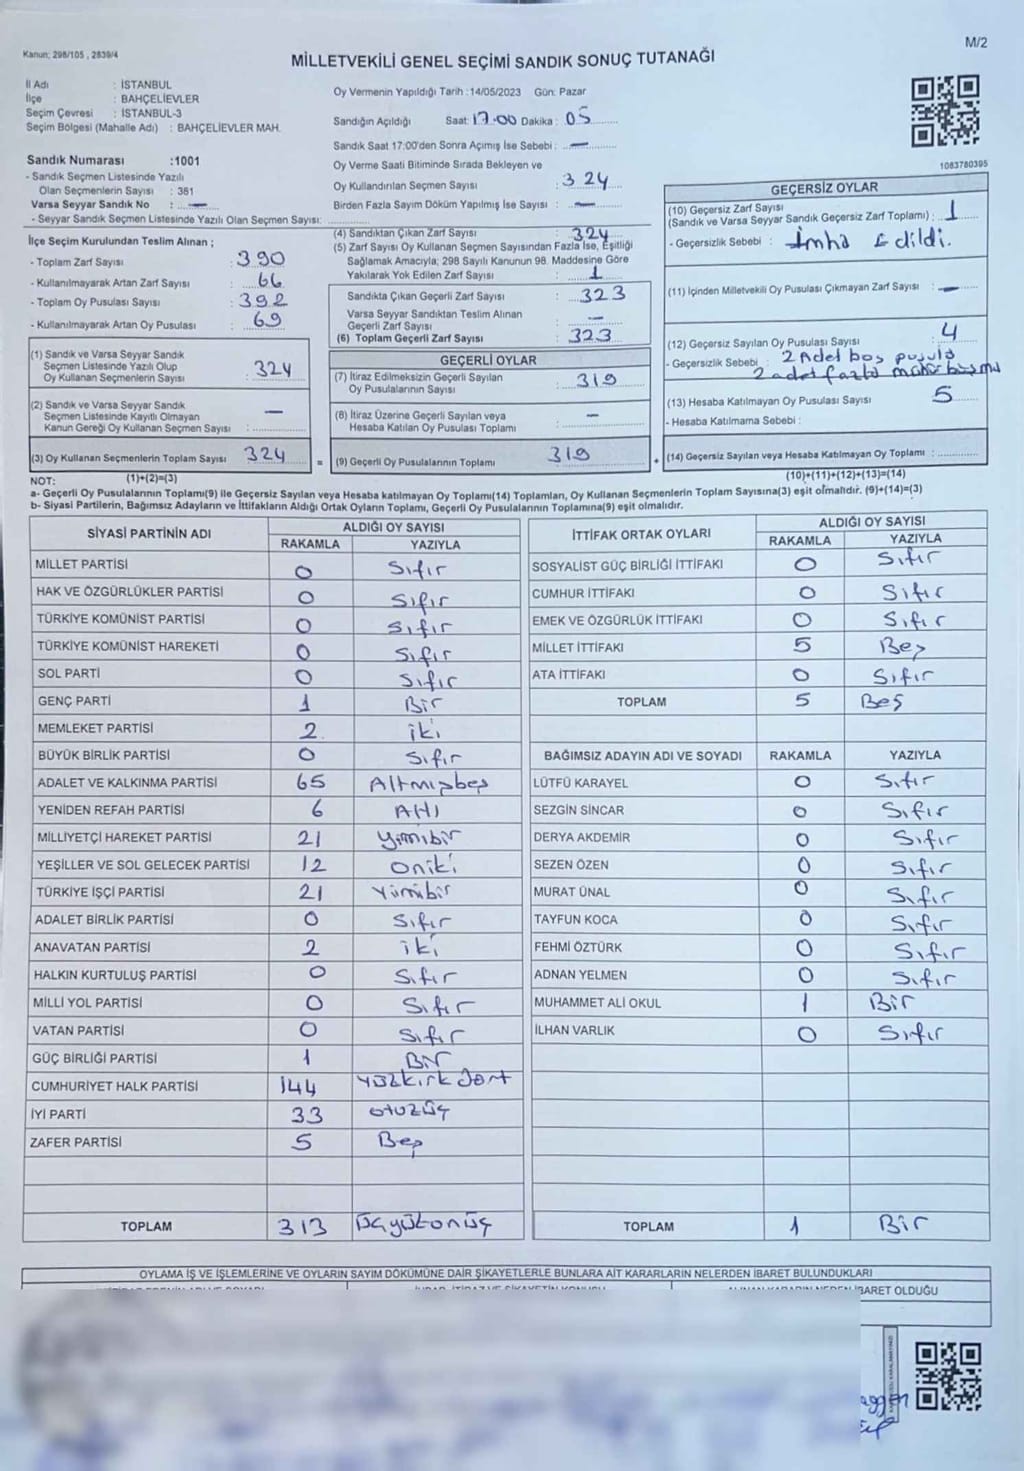 Kanun; 298/105 , 2839/4
M/2
MİLLETVEKİLİ GENEL SEÇİMİ SANDIK SONUÇ TUTANAĞI
İl Adı : İSTANBUL
İlçe : BAHÇELİEVLER
Seçim Çevresi : İSTANBUL-3
Seçim Bölgesi (Mahalle Adı) : BAHÇELİEVLER MAH.
Sandık Numarası :1001
- Sandık Seçmen Listesinde Yazılı
Olan Seçmenlerin Sayısı : 381
Varsa Seyyar Sandık No : —
- Seyyar Sandık Seçmen Listesinde Yazılı Olan Seçmen Sayısı:
Oy Vermenin Yapıldığı Tarih :14/05/2023 Gün: Pazar
Sandığın Açıldığı Saat: 17.00 Dakika : 05
Sandık Saat 17:00'den Sonra Açımış İse Sebebi : —
Oy Verme Saati Bitiminde Sırada Bekleyen ve
Oy Kullandırılan Seçmen Sayısı : 324
Birden Fazla Sayım Döküm Yapılmış İse Sayısı : —
1083780395
İlçe Seçim Kurulundan Teslim Alınan ;
- Toplam Zarf Sayısı : 390
- Kullanılmayarak Artan Zarf Sayısı : 66
- Toplam Oy Pusulası Sayısı : 392
- Kullanılmayarak Artan Oy Pusulası : 69
(1) Sandık ve Varsa Seyyar Sandık
Seçmen Listesinde Yazılı Olup
Oy Kullanan Seçmenlerin Sayısı : 324
(2) Sandık ve Varsa Seyyar Sandık
Seçmen Listesinde Kayıtlı Olmayan
Kanun Gereği Oy Kullanan Seçmen Sayısı : —
(3) Oy Kullanan Seçmenlerin Toplam Sayısı 324
(4) Sandıktan Çıkan Zarf Sayısı : 324
(5) Zarf Sayısı Oy Kullanan Seçmen Sayısından Fazla İse, Eşitliği
Sağlamak Amacıyla; 298 Sayılı Kanunun 98. Maddesine Göre
Yakılarak Yok Edilen Zarf Sayısı : 1
Sandıkta Çıkan Geçerli Zarf Sayısı : 323
Varsa Seyyar Sandıktan Teslim Alınan
Geçerli Zarf Sayısı : —
(6) Toplam Geçerli Zarf Sayısı : 323
GEÇERLİ OYLAR
(7) İtiraz Edilmeksizin Geçerli Sayılan
Oy Pusulalarının Sayısı : 319
(8) İtiraz Üzerine Geçerli Sayılan veya
Hesaba Katılan Oy Pusulası Toplamı : —
= (9) Geçerli Oy Pusulalarının Toplamı 319
GEÇERSİZ OYLAR
(10) Geçersiz Zarf Sayısı
(Sandık ve Varsa Seyyar Sandık Geçersiz Zarf Toplamı) : 1
- Geçersizlik Sebebi : İmha Edildi.
(11) İçinden Milletvekili Oy Pusulası Çıkmayan Zarf Sayısı : —
(12) Geçersiz Sayılan Oy Pusulası Sayısı : 4
- Geçersizlik Sebebi : 2 Adet boş pusula
2 adet fazla mühür
(13) Hesaba Katılmayan Oy Pusulası Sayısı 5
- Hesaba Katılmama Sebebi :
+ (14) Geçersiz Sayılan veya Hesaba Katılmayan Oy Toplamı :
NOT: (1)+(2)=(3) (10)+(11)+(12)+(13)=(14)
a- Geçerli Oy Pusulalarının Toplamı(9) ile Geçersiz Sayılan veya Hesaba katılmayan Oy Toplamı(14) Toplamları, Oy Kullanan Seçmenlerin Toplam Sayısına(3) eşit olmalıdır. (9)+(14)=(3)
b- Siyasi Partilerin, Bağımsız Adayların ve İttifakların Aldığı Ortak Oyların Toplamı, Geçerli Oy Pusulalarının Toplamına(9) eşit olmalıdır.
SİYASİ PARTİNİN ADI ALDIĞI OY SAYISI
RAKAMLA YAZIYLA
MİLLET PARTİSİ 0 Sıfır
HAK VE ÖZGÜRLÜKLER PARTİSİ 0 Sıfır
TÜRKİYE KOMÜNİST PARTİSİ 0 Sıfır
TÜRKİYE KOMÜNİST HAREKETİ 0 Sıfır
SOL PARTİ 0 Sıfır
GENÇ PARTİ 1 Bir
MEMLEKET PARTİSİ 2 iki
BÜYÜK BİRLİK PARTİSİ 0 Sıfır
ADALET VE KALKINMA PARTİSİ 65 Altmışbeş
YENİDEN REFAH PARTİSİ 6 Altı
MİLLİYETÇİ HAREKET PARTİSİ 21 Yirmibir
YEŞİLLER VE SOL GELECEK PARTİSİ 12 oniki
TÜRKİYE İŞÇİ PARTİSİ 21 Yirmibir
ADALET BİRLİK PARTİSİ 0 Sıfır
ANAVATAN PARTİSİ 2 iki
HALKIN KURTULUŞ PARTİSİ 0 Sıfır
MİLLİ YOL PARTİSİ 0 Sıfır
VATAN PARTİSİ 0 Sıfır
GÜÇ BİRLİĞİ PARTİSİ 1 Bir
CUMHURİYET HALK PARTİSİ 144 Yüzkırkdört
İYİ PARTİ 33 otuzüç
ZAFER PARTİSİ 5 Beş
TOPLAM 313 Üçyüzonüç
İTTİFAK ORTAK OYLARI ALDIĞI OY SAYISI
RAKAMLA YAZIYLA
SOSYALİST GÜÇ BİRLİĞİ İTTİFAKI 0 Sıfır
CUMHUR İTTİFAKI 0 Sıfır
EMEK VE ÖZGÜRLÜK İTTİFAKI 0 Sıfır
MİLLET İTTİFAKI 5 Beş
ATA İTTİFAKI 0 Sıfır
TOPLAM 5 Beş
BAĞIMSIZ ADAYIN ADI VE SOYADI RAKAMLA YAZIYLA
LÜTFÜ KARAYEL 0 Sıfır
SEZGİN SİNCAR 0 Sıfır
DERYA AKDEMİR 0 Sıfır
SEZEN ÖZEN 0 Sıfır
MURAT ÜNAL 0 Sıfır
TAYFUN KOCA 0 Sıfır
FEHMİ ÖZTÜRK 0 Sıfır
ADNAN YELMEN 0 Sıfır
MUHAMMET ALİ OKUL 1 Bir
İLHAN VARLIK 0 Sıfır
TOPLAM 1 Bir
OYLAMA İŞ VE İŞLEMLERİNE VE OYLARIN SAYIM DÖKÜMÜNE DAİR ŞİKAYETLERLE BUNLARA AİT KARARLARIN NELERDEN İBARET BULUNDUKLARI
BARET OLDUĞU